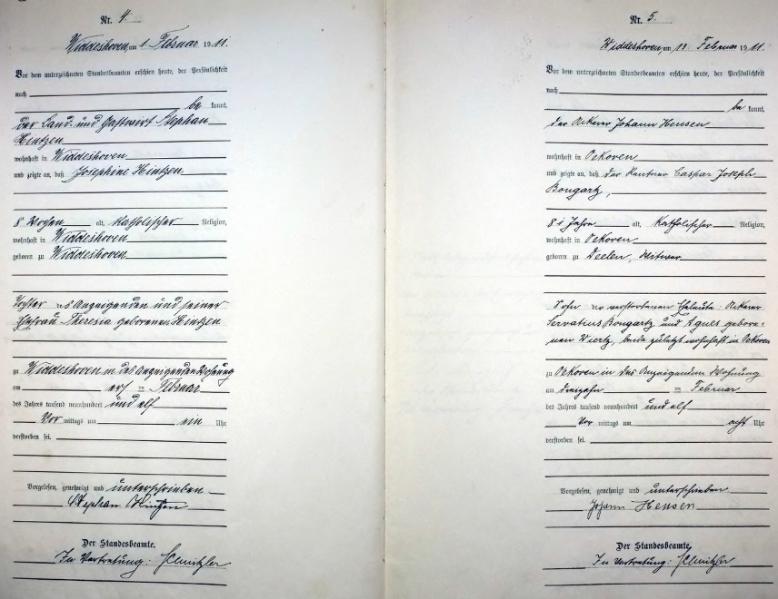 Nr. 4.
Widdeshoven, am 1 Februar 1911.
Vor dem unterzeichneten Standesbeamten erschien heute, der Persönlichkeit
nach
be kannt,
der Land- und Gastwirt Stephan
Hintzen
wohnhaft in Widdeshoven
und zeigte an, daß Josephine Hintzen
8 Wochen alt, katholischer Religion,
wohnhaft in Widdeshoven
geboren zu Widdeshoven
Tochter des Anzeigenden und seiner
Ehefrau Theresia geborenen Hintzen
zu Widdeshoven in des Anzeigenden Wohnung
am ersten Februar
des Jahres tausend neunhundert und elf
Vor mittags um ein Uhr
verstorben sei.
Vorgelesen, genehmigt und unterschrieben
Stephan Hintzen
Der Standesbeamte.
In Vertretung: Schmitzler
Nr. 5.
Widdeshoven, am Februar 1911.
Vor dem unterzeichneten Standesbeamten erschien heute, der Persönlichkeit
nach
be kannt,
der Ackerer Johann Hensen
wohnhaft in Oekoven
und zeigte an, daß der Rentner Caspar Joseph
Bongartz,
Jahre alt, katholischer Religion,
wohnhaft in Oekoven
geboren zu Deelen, Witwer
Sohn der verstorbenen Eheleute Ackerer
Servatius Bongartz und Agnes gebore-
nen Wiertz, beide zuletzt wohnhaft in Oekoven
zu Oekoven in des Anzeigenden Wohnung
am dreizehn ten Februar
des Jahres tausend neunhundert und elf
Vor mittags um acht Uhr
verstorben sei.
Vorgelesen, genehmigt und unterschrieben
Johann Hensen
Der Standesbeamte.
In Vertretung: Schmitzler